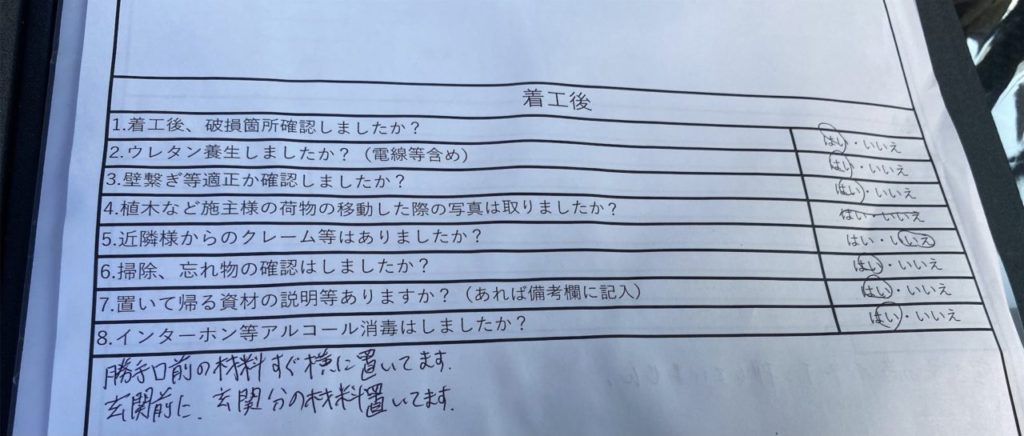 着工後
1.着工後、破損箇所確認しましたか？ はい・いいえ
2.ウレタン養生しましたか？（電線等含め） はい・いいえ
3.壁繋ぎ等適正か確認しましたか？ はい・いいえ
4.植木など施主様の荷物の移動した際の写真は取りましたか？ はい・いいえ
5.近隣様からのクレーム等はありましたか？ はい・いいえ
6.掃除、忘れ物の確認はしましたか？ はい・いいえ
7.置いて帰る資材の説明等ありますか？（あれば備考欄に記入） はい・いいえ
8.インターホン等アルコール消毒はしましたか？ はい・いいえ
勝手口前の材料すぐ横に置いてます.
玄関前に、玄関分の材料置いてます.